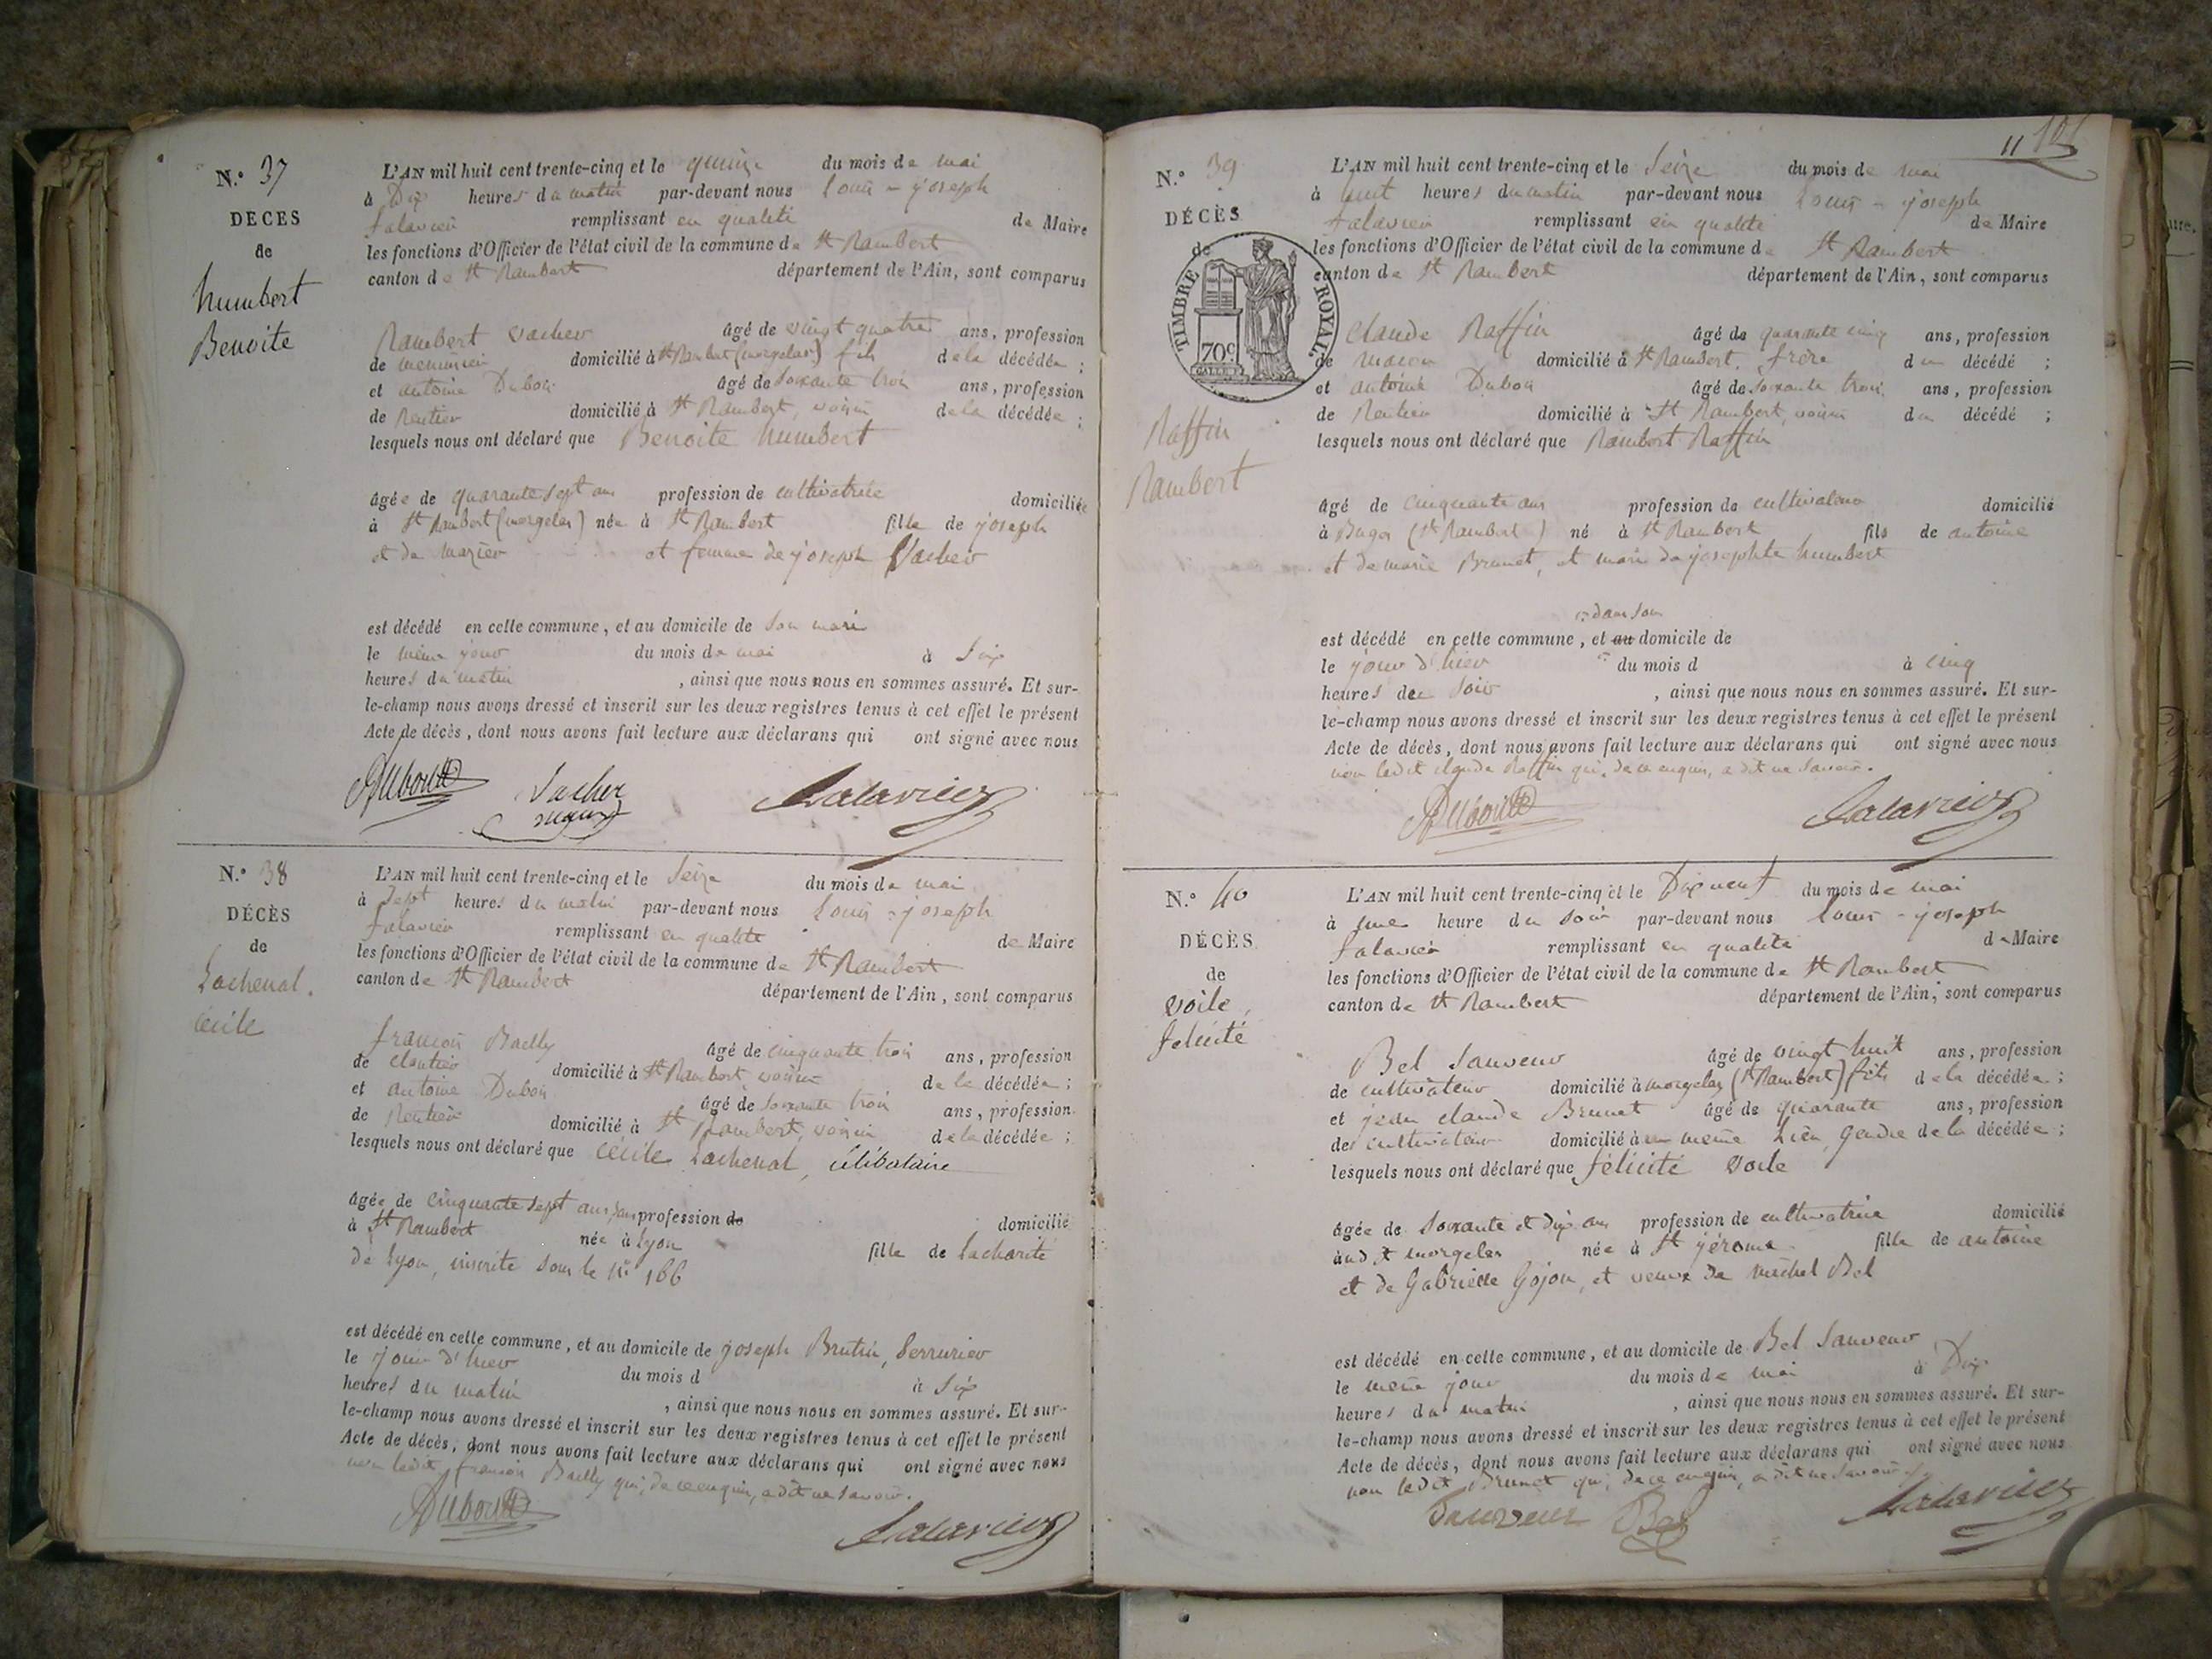 N.° 37
DECES
de
humbert
Benoite
L'AN mil huit cent trente-cinq et le quinze du mois de mai
à Dix heures du matin par-devant nous Louis - joseph
falavier remplissant en qualité de Maire
les fonctions d'Officier de l'état civil de la commune de St Rambert
canton de St Rambert département de l'Ain, sont comparus
Rambert vacher âgé de vingt quatre ans, profession
de menuisier domicilié à St Rambert (morgelas) fils de la décédée ;
et antoine Dubois âgé de soixante trois ans, profession
de Rentier domicilié à St Rambert, voisin de la décédée ;
lesquels nous ont déclaré que Benoite humbert
âgée de quarante sept ans profession de cultivatrice domiciliée
à St Rambert (morgelas) née à St Rambert fille de joseph
et de et femme de joseph Vacher
est décédé en cette commune, et au domicile de son mari
le même jour du mois de mai à Six
heures du matin , ainsi que nous nous en sommes assuré. Et sur-
le-champ nous avons dressé et inscrit sur les deux registres tenus à cet effet le présent
Acte de décès, dont nous avons fait lecture aux déclarans qui ont signé avec nous
Vacher
N.° 38
DÉCÈS
de
Lachenal.
cécile
L'AN mil huit cent trente-cinq et le Seize du mois de mai
à Sept heures du matin par-devant nous Louis - joseph
falavier remplissant en qualité de Maire
les fonctions d'Officier de l'état civil de la commune de St Rambert
canton de St Rambert département de l'Ain, sont comparus
françois Bailly âgé de cinquante trois ans, profession
de cloutier domicilié à St Rambert, voisin de la décédée ;
et antoine Dubois âgé de soixante trois ans, profession
de Rentier domicilié à St Rambert, voisin de la décédée ;
lesquels nous ont déclaré que Cécile Lachenal, célibataire
âgée de cinquante sept ans, sans profession de domicilié
à St Rambert née à Lyon fille de Lacharité
de Lyon, inscrite sous le N° 166
est décédé en cette commune, et au domicile de joseph Brutin, Serrurier
le jour d'hier du mois d à Six
heures du matin , ainsi que nous nous en sommes assuré. Et sur-
le-champ nous avons dressé et inscrit sur les deux registres tenus à cet effet le présent
Acte de décès, dont nous avons fait lecture aux déclarans qui ont signé avec nous
non ledit françois Bailly qui, de ce enquis, a dit ne savoir.
11
N.° 39
DÉCÈS
de
TIMBRE ROYAL.
70c
Raffin
Rambert
L'AN mil huit cent trente-cinq et le Seize du mois de mai
à huit heures du matin par-devant nous Louis - joseph
falavier remplissant en qualité de Maire
les fonctions d'Officier de l'état civil de la commune de St Rambert
canton de St Rambert département de l'Ain, sont comparus
Claude Raffin âgé de quarante cinq ans, profession
de macon domicilié à St Rambert, frère du décédé ;
et antoine Dubois âgé de soixante trois ans, profession
de Rentier domicilié à St Rambert, voisin du décédé ;
lesquels nous ont déclaré que Rambert Raffin
âgé de cinquante ans profession de cultivateur domicilié
à (St Rambert) né à St Rambert fils de antoine
et de marie Brunet, et mari de josephte humbert
dans son
est décédé en cette commune, et au domicile de
le jour d'hier du mois d à cinq
heures du soir , ainsi que nous nous en sommes assuré. Et sur-
le-champ nous avons dressé et inscrit sur les deux registres tenus à cet effet le présent
Acte de décès, dont nous avons fait lecture aux déclarans qui ont signé avec nous
non ledit claude Raffin qui, de ce enquis, a dit ne savoir.
N.° 40
DÉCÈS
de
Voile,
felicité
L'AN mil huit cent trente-cinq et le Dix neuf du mois de mai
à une heure du soir par-devant nous Louis - joseph
falavier remplissant en qualité de Maire
les fonctions d'Officier de l'état civil de la commune de St Rambert
canton de St Rambert département de l'Ain, sont comparus
Bel Sauveur âgé de vingt huit ans, profession
de cultivateur domicilié à morgelas (St Rambert) fils de la décédée ;
et jean claude Brunet âgé de quarante ans, profession
de cultivateur domicilié à même Lieu, Gendre de la décédée ;
lesquels nous ont déclaré que félicité Voile
âgée de soixante et dix ans profession de cultivatrice domicilié
audit morgelas née à St jérome fille de antoine
et de Gabrielle Gojon, et veuve de michel Bel
est décédé en cette commune, et au domicile de Bel Sauveur
le même jour du mois de mai à Dix
heures du matin , ainsi que nous nous en sommes assuré. Et sur-
le-champ nous avons dressé et inscrit sur les deux registres tenus à cet effet le présent
Acte de décès, dont nous avons fait lecture aux déclarans qui ont signé avec nous
non ledit Brunet qui, de ce enquis, a dit ne savoir.
Sauveur Bel